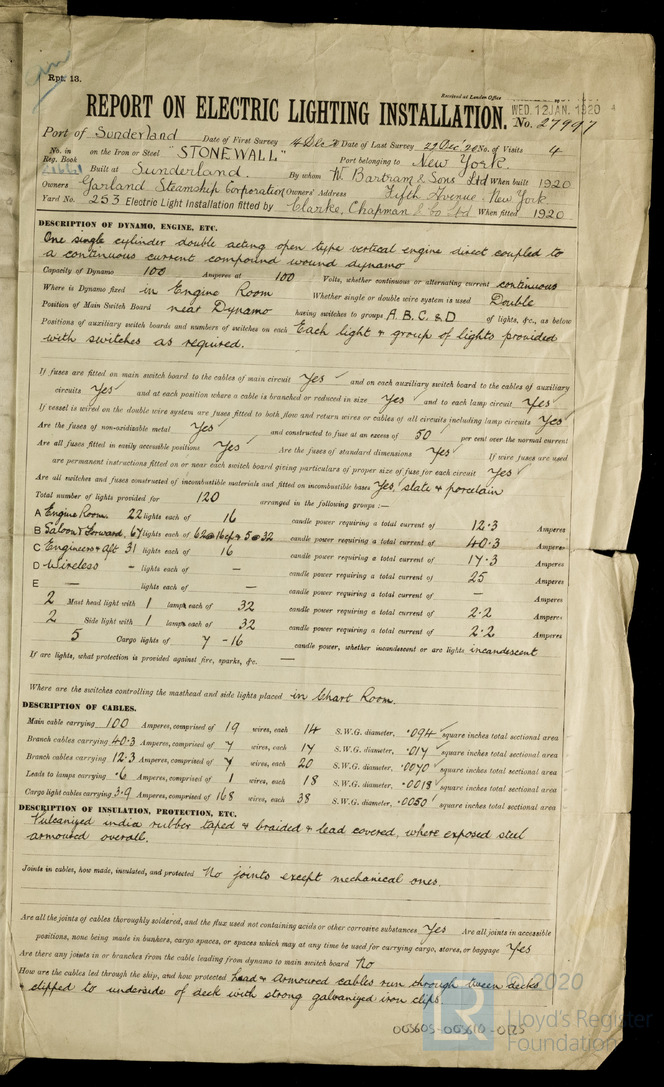 Rpt. 13.
Received at London Office
WED. 12 JAN. 1920
REPORT ON ELECTRIC LIGHTING INSTALLATION. No. 27997
Port of Sunderland Date of First Survey 4 Dec Date of Last Survey 29 Dec '20 No. of Visits 4
No. in Reg. Book on the Iron or Steel "STONEWALL" Port belonging to New York.
Built at Sunderland. By whom W. Bartram & Sons Ltd When built 1920
Owners Garland Steamship Corporation Owners' Address Fifth Avenue. New York
Yard No. 253 Electric Light Installation fitted by Clarke, Chapman & Co Ltd When fitted 1920
DESCRIPTION OF DYNAMO, ENGINE, ETC.
One single cylinder double acting open type vertical engine direct coupled to
a continuous current compound wound dynamo
Capacity of Dynamo 100 Amperes at 100 Volts, whether continuous or alternating current continuous
Where is Dynamo fixed in Engine Room Whether single or double wire system is used Double
Position of Main Switch Board near Dynamo having switches to groups A. B. C. & D of lights, &c., as below
Positions of auxiliary switch boards and numbers of switches on each Each light & group of lights provided
with switches as required.
If fuses are fitted on main switch board to the cables of main circuit Yes and on each auxiliary switch board to the cables of auxiliary
circuits Yes and at each position where a cable is branched or reduced in size Yes and to each lamp circuit Yes
If vessel is wired on the double wire system are fuses fitted to both flow and return wires or cables of all circuits including lamp circuits Yes
Are the fuses of non-oxidizable metal Yes and constructed to fuse at an excess of 50 per cent over the normal current
Are all fuses fitted in easily accessible positions Yes Are the fuses of standard dimensions Yes If wire fuses are used
are permanent instructions fitted on or near each switch board giving particulars of proper size of fuse for each circuit Yes
Are all switches and fuses constructed of incombustible materials and fitted on incombustible bases Yes, slate & porcelain
Total number of lights provided for 120 arranged in the following groups :—
A Engine Room. 22 lights each of 16 candle power requiring a total current of 12.3 Amperes
B Saloon & Forward. 67 lights each of 62 @ 16 cp & 5 @ 32 candle power requiring a total current of 40.3 Amperes
C Engineers & Aft 31 lights each of 16 candle power requiring a total current of 17.3 Amperes
D Wireless - lights each of - candle power requiring a total current of 25 Amperes
E — lights each of — candle power requiring a total current of — Amperes
2 Mast head light with 1 lamps each of 32 candle power requiring a total current of 2.2 Amperes
2 Side light with 1 lamps each of 32 candle power requiring a total current of 2.2 Amperes
5 Cargo lights of 7 - 16 candle power, whether incandescent or arc lights incandescent
If arc lights, what protection is provided against fire, sparks, &c. —
Where are the switches controlling the masthead and side lights placed in Chart Room.
DESCRIPTION OF CABLES.
Main cable carrying 100 Amperes, comprised of 19 wires, each 14 S.W.G. diameter, .094 square inches total sectional area
Branch cables carrying 40.3 Amperes, comprised of 7 wires, each 17 S.W.G. diameter, .017 square inches total sectional area
Branch cables carrying 12.3 Amperes, comprised of 7 wires, each 20 S.W.G. diameter, .0070 square inches total sectional area
Leads to lamps carrying .6 Amperes, comprised of 1 wires, each 18 S.W.G. diameter, .0018 square inches total sectional area
Cargo light cables carrying 3.9 Amperes, comprised of 168 wires, each 38 S.W.G. diameter, .0050 square inches total sectional area
DESCRIPTION OF INSULATION, PROTECTION, ETC.
Vulcanized india rubber taped & braided & lead covered, where exposed steel
armoured overall.
Joints in cables, how made, insulated, and protected No joints except mechanical ones.
Are all the joints of cables thoroughly soldered, and the flux used not containing acids or other corrosive substances Yes Are all joints in accessible
positions, none being made in bunkers, cargo spaces, or spaces which may at any time be used for carrying cargo, stores, or baggage Yes
Are there any joints in or branches from the cable leading from dynamo to main switch board No
How are the cables led through the ship, and how protected Lead & Armoured cables run through tween decks
& clipped to underside of deck with strong galvanized iron clips.
005605-005610-0125
LR
© 2020
Lloyd's Register
Foundation